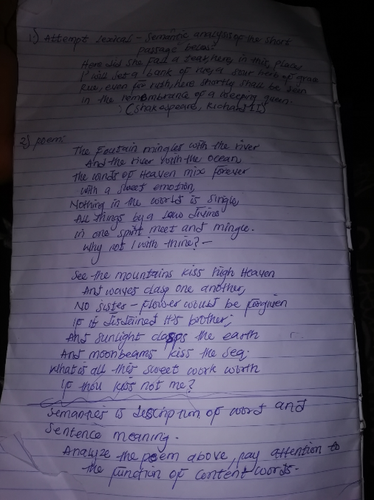 1) Attempt Lexical - Semantic analysis of the short
passage below:
Here did she fall a tear, here in this place
I will set a bank of sour herb of grace
Rue, even for ruth, here shortly shall be seen
in the remembrance of a weeping queen.
(Shakespeare, Richard II)
2) poem:
The fountain mingles with the river
And the river with the ocean
the winds of Heaven mix forever
with a sweet emotion,
Nothing in the world is single,
All things by a law divine
in one spirit meet and mingle.
Why not I with thine?-
See the mountains kiss high Heaven
And waves clasp one another,
No sister-flower would be forgiven
If it disdained its brother;
And sunlight clasps the earth
And moonbeams kiss the sea:
What is all this sweet work worth
If thou kiss not me?
Semantics is description of word and
Sentence meaning.
Analyze the poem above, pay attention to
the function of content words.